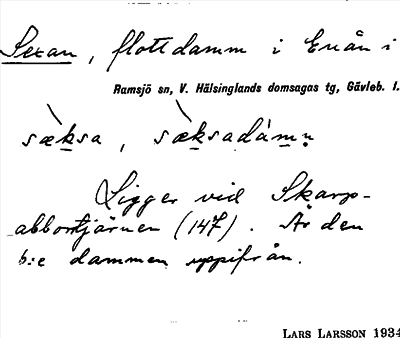 Sexan, flottdamm i Enån i
Ramsjö sn, V. Hälsinglands domsagas tg, Gävleb. l.
sæksa, sæksadàmn
Ligger vid Skarp-
abborrtjärnen (147). Är den
6:e dammen uppifrån.
LARS LARSSON 1934